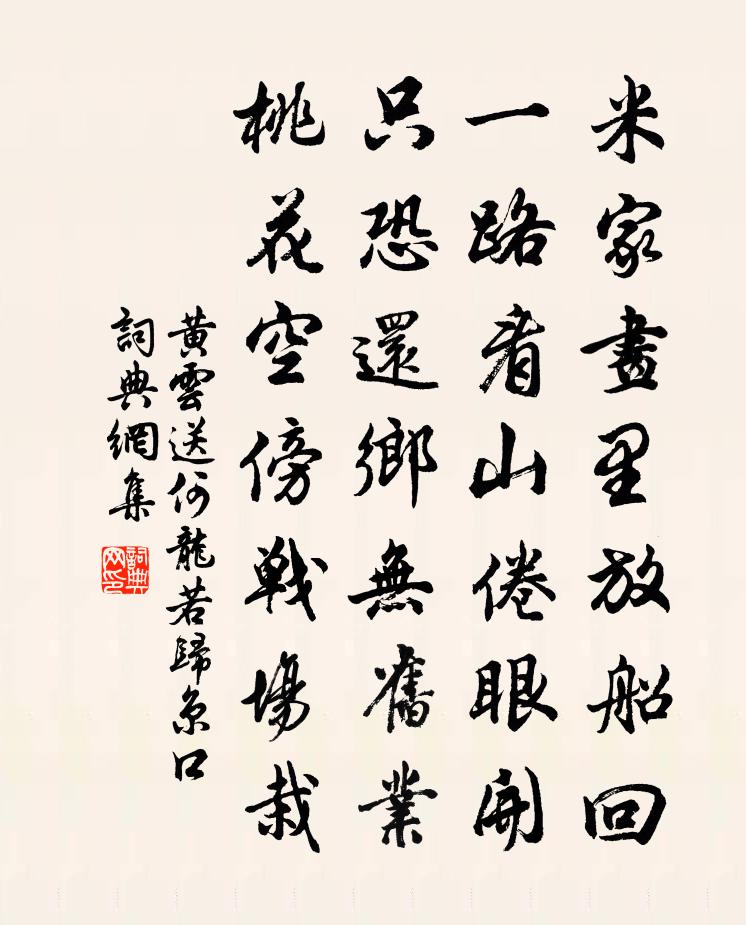 米家畫里放船回
一路看山倦眼開
只恐還鄉無舊業
桃花空傍戰場栽
黃雲送何龍若歸京口
詞典網集
詞典网印